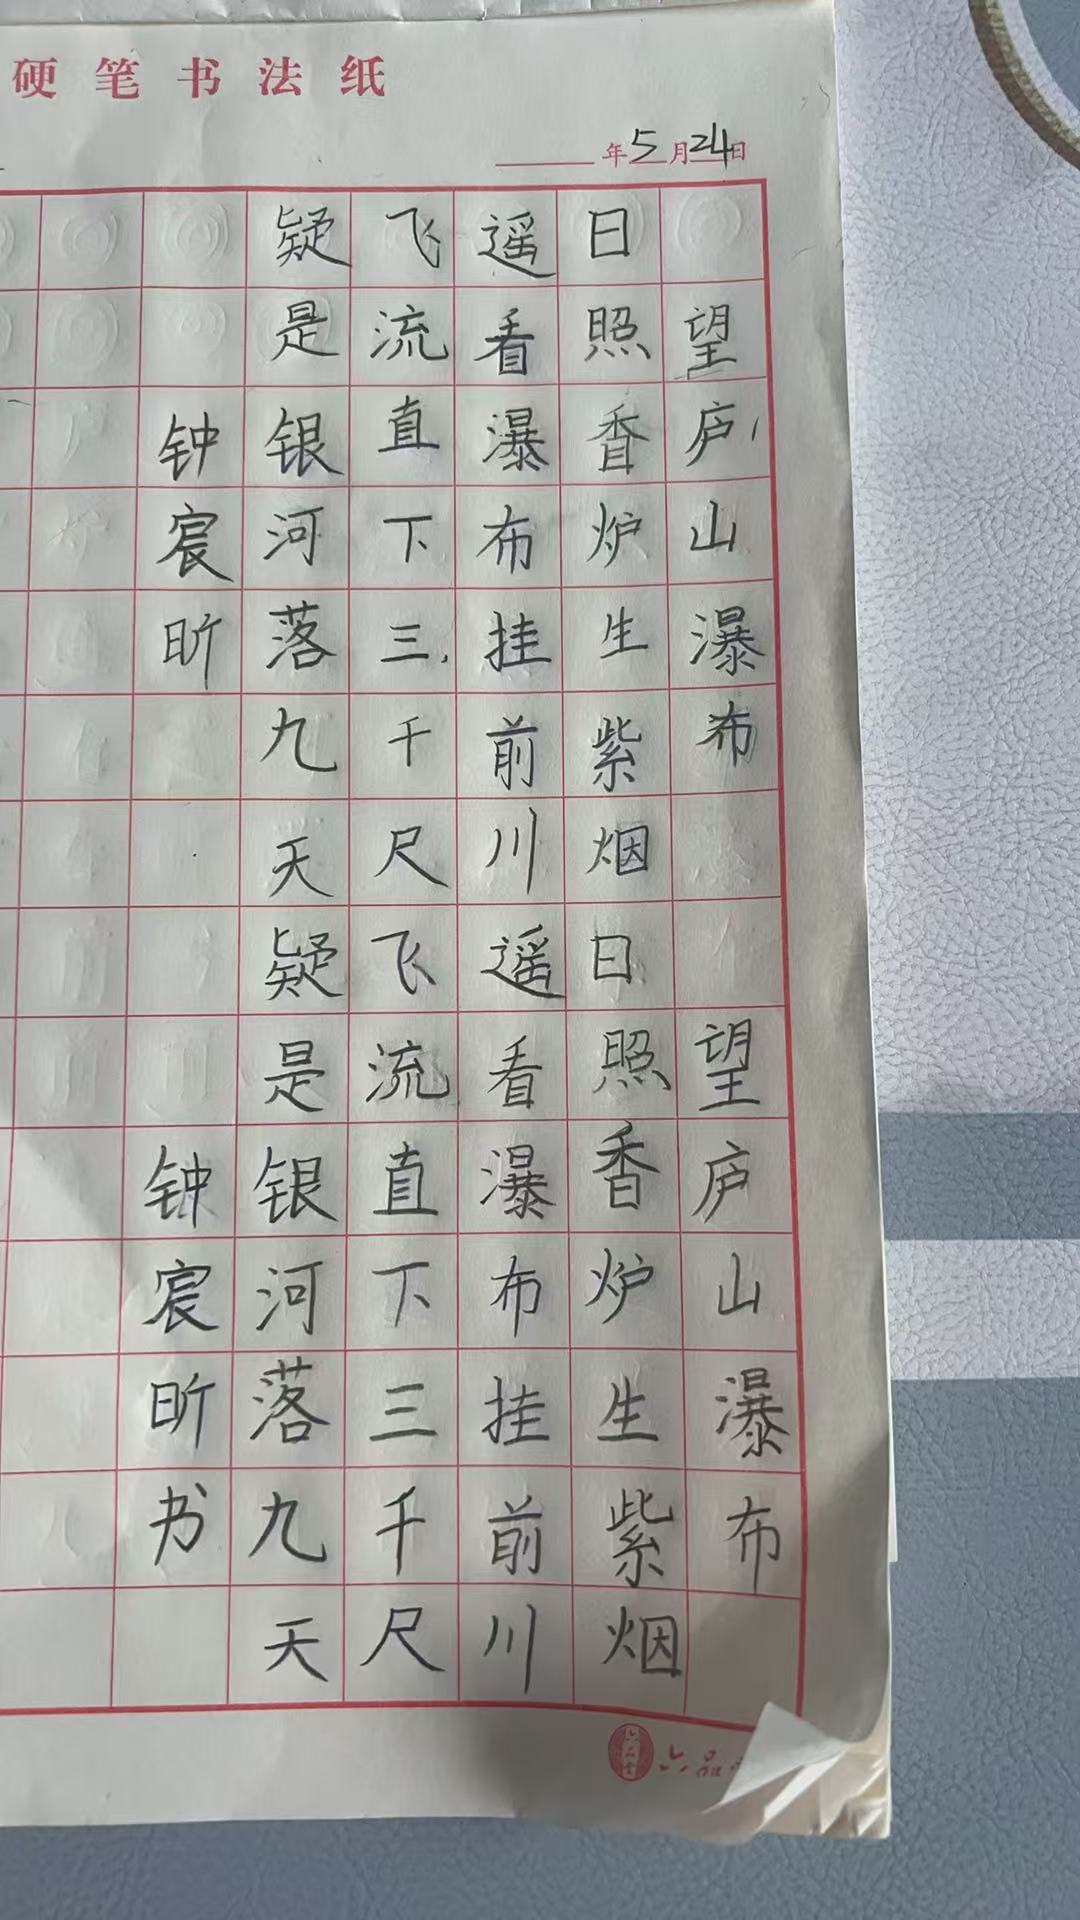 硬笔书法纸
年5月24日
望庐山瀑布
望庐山瀑布
日照香炉生紫烟
日照香炉生紫烟
遥看瀑布挂前川
遥看瀑布挂前川
飞流直下三千尺
飞流直下三千尺
疑是银河落九天
疑是银河落九天
钟宸昕
钟宸昕书
六品